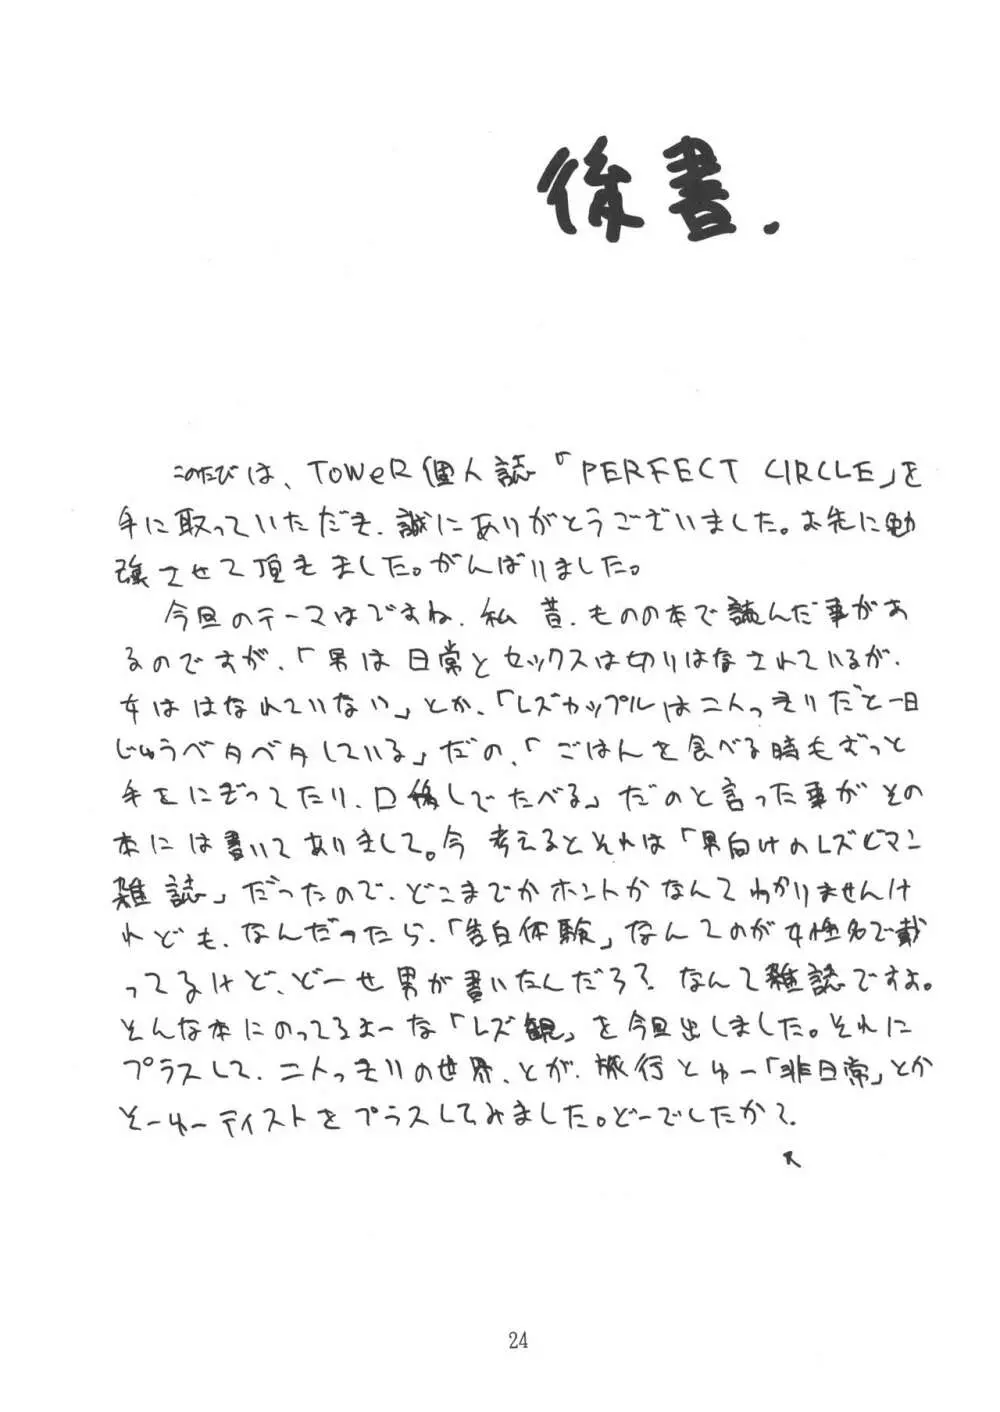 後書.
このたびは、ToWeR個人誌「PERFECT CIRCLE」を
手に取っていただき、誠にありがとうございました。お先に勉
強させて頂きました。がんばりました。
今回のテーマはですね、私昔、ものの本で読んだ事があ
るのですが、「男は日常とセックスは切りはなされているが、
女ははなれていない」とか、「レズカップルは二人っきりだと一日
じゅうベタベタしている」だの、「ごはんを食べる時もずっと
手をにぎってたり、口移しでたべる」だのと言った事がその
本には書いてありまして。今考えるとそれは「男向けのレズビアン
雑誌」だったので、どこまでがホントかなんてわかりませんけ
れども、なんだったら、「告白体験」なんてのが女性名で載
ってるけど、どーせ男が書いたんだろ?なんて雑誌ですよ。
そんな本にのってるよーな「レズ観」を今回出しました。それに
プラスして、二人っきりの世界、とか、旅行とゆー「非日常」とか
そーゆーテイストをプラスしてみました。どーでしたか?
R
24